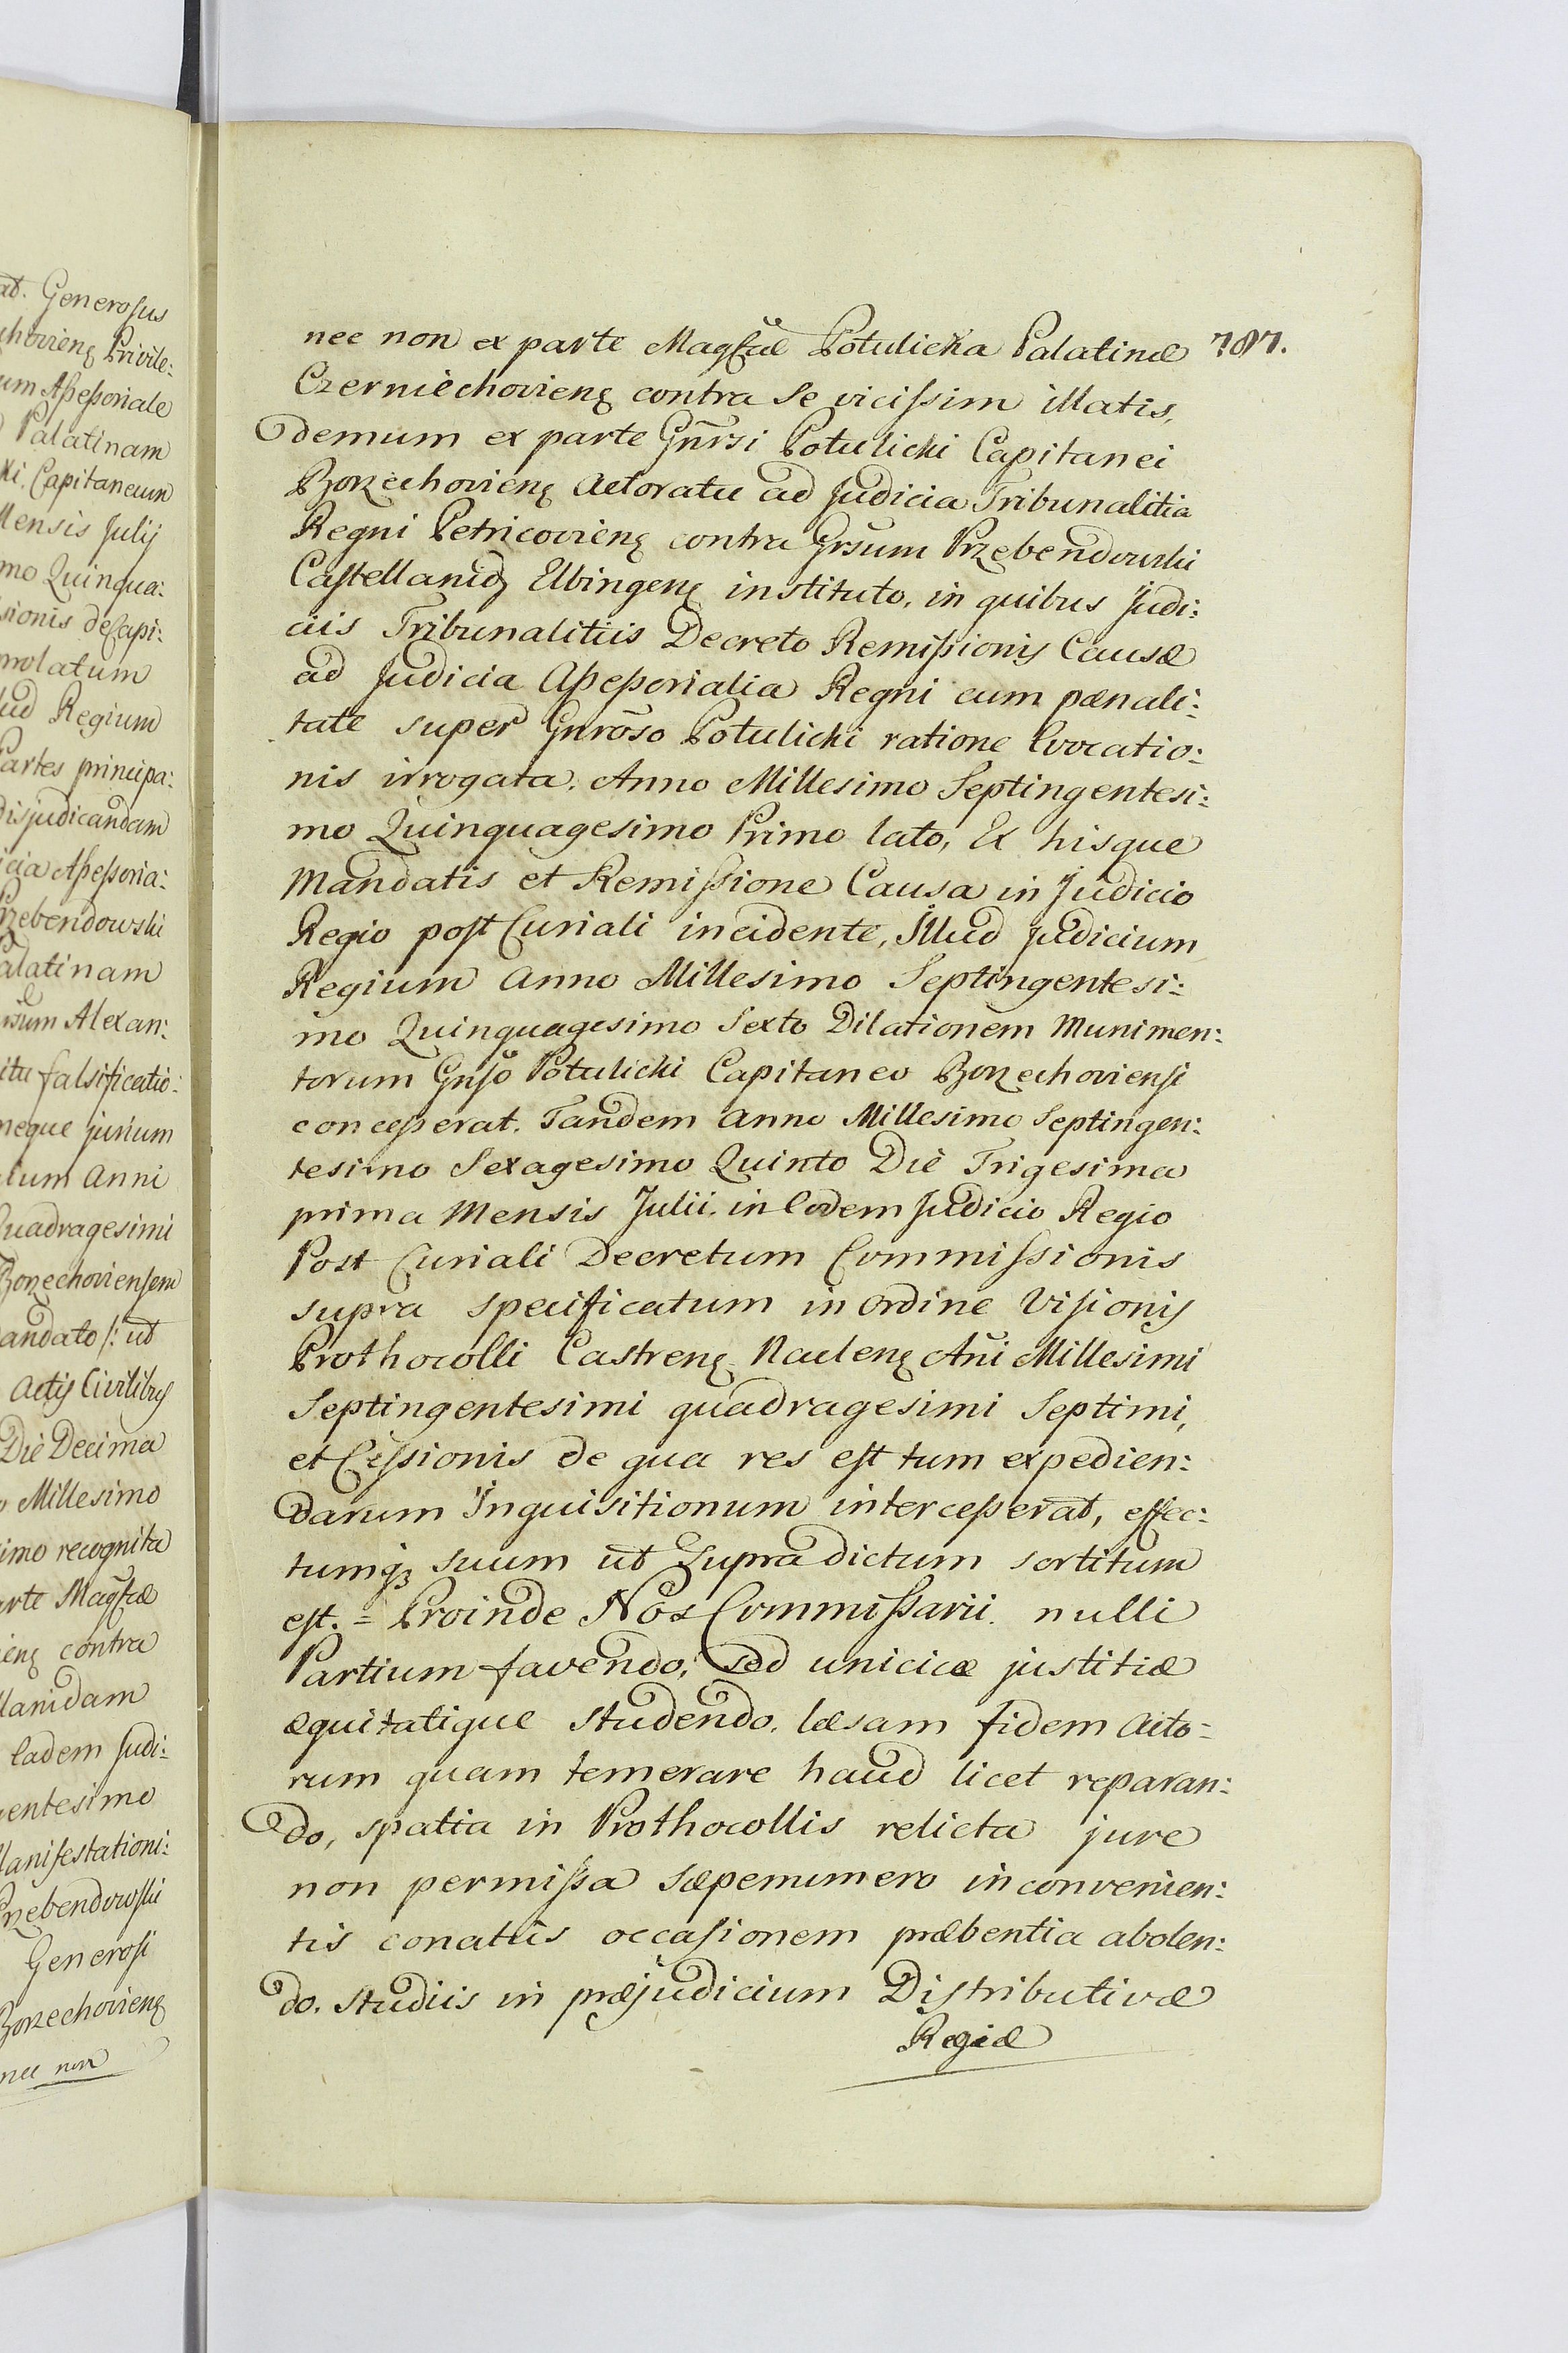 at. Generosus
choviens Privile:
um Assessoriale
Palatinam
ki, Capitaneum
Mensis Julij
mo Quinqua:
sionis de Capi:
molatum
lud Regium
Partes principa:
disjudicandam
icia Assessoria:
Przebendowski
alatinam
Alexan:
itu falsificatio:
neque jurium
Anni
Quadragesimi
Borzechoviensem
andato /: ut
Actis Civilibus
Die Decima
Millesimo
imo recognita
arte Magfcæ
iens contra
llanidam
Eadem Judi:
entesimo
Manifestationi:
Przebendowski
Generosi
Borzechoviens
nec non
nec non ex parte Magfcæ Potulicka Palatinæ 787.
Czerniechoviens contra se vicissim illatis,
demum ex parte Gnrsi Potulicki Capitanei
Borzechoviens Actoratu ad Judicia Tribunalitia
Regni Petricoviens contra Grsum Przebendowski
Castellanid Elbingens instituto, in quibus Judi:
ciis Tribunalitiis Decreto Remissionis Causæ
ad Judicia Assessorialia Regni cum pænali:
tate super Gnroso Potulicki ratione Evocatio:
nis irrogata. Anno Millesimo Septingentesi:
mo Quinquagesimo Primo lato, Ex hisque
Mandatis et Remissione Causa in Judicio
Regio post Curiali incidente, Illud Judicium
Regium Anno Millesimo Septingentesi:
mo Quinquagesimo Sexto Dilationem Munimen:
torum Gnso Potulicki Capitaneo Borzechoviensi
concesserat. Tandem Anno Millesimo Septingen:
tesimo Sexagesimo Quinto Die Trigesima
prima Mensis Julii. in Eodem Judicio Regio
Post Curiali Decretum Commissionis
supra specificatum in ordine Visionis
Prothocolli Castrens Naclens Ani Millesimi
Septingentesimi quadragesimi Septimi,
et Cessionis de qua res est tum expedien:
darum Inquisitionum intercesserat, effec:
tumq3 suum ut Supra dictum sortitum
est. = Proinde Nos Commissarii. nulli
Partium favendo, sed unicicæ justitiæ
æquitatique studendo, læsam fidem Acto=
rum quam temerare haud licet reparan:
do, spatia in Prothocollis relicta jure
non permissa sæpenumero inconvenien:
tis conatus occasionem præbentia abolen:
do, studiis in præjudicium Distributivæ
Regiæ